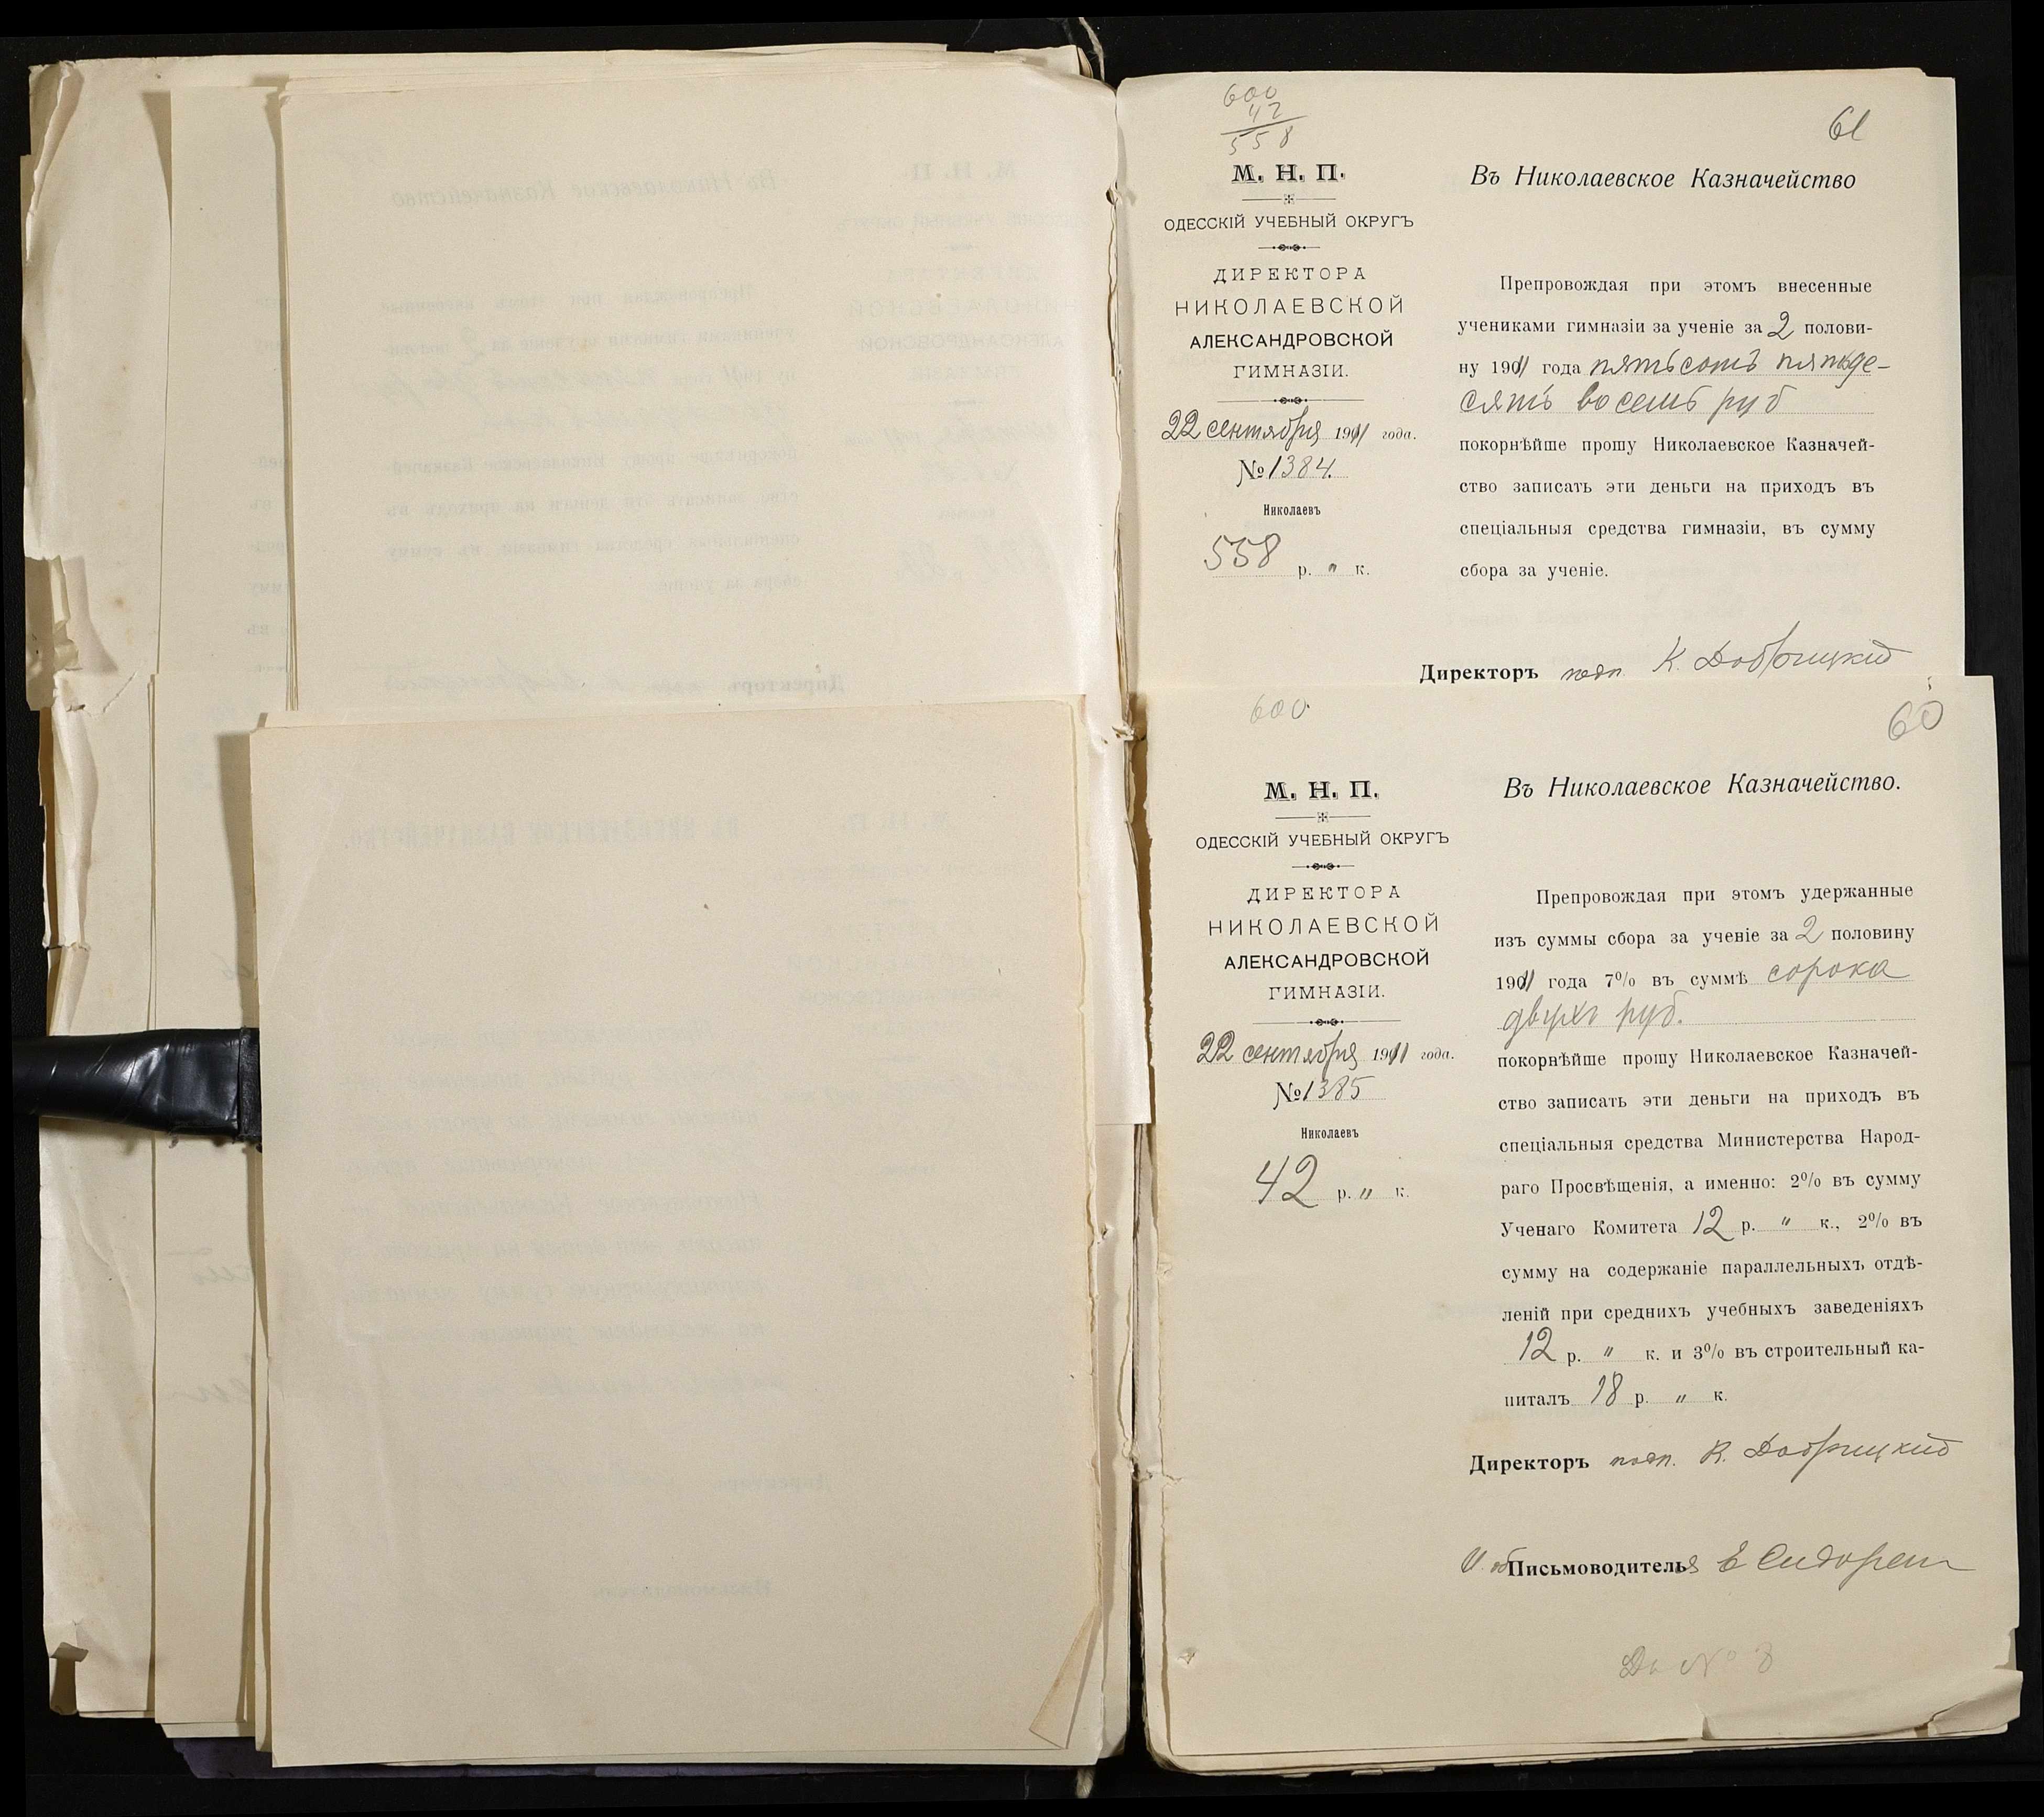 600
42
558
61
М. Н. П.
ОДЕССКІЙ УЧЕБНЫЙ ОКРУГЪ
ДИРЕКТОРА
НИКОЛАЕВСКОЙ
АЛЕКСАНДРОВСКОЙ
ГИМНАЗІИ.
22 сентября 1911 года.
№ 1384.
Николаевъ
558 р. " к.
Въ Николаевское Казначейство
Препровождая при этомъ внесенные
учениками гимназіи за ученіе за 2 полови-
ну 1911 года пятьсотъ пятьде-
сятъ восемь руб
покорнѣйше прошу Николаевское Казначей-
ство записать эти деньги на приходъ въ
спеціальныя средства гимназіи, въ сумму
сбора за ученіе.
Директоръ подп. К. Добрицкій
600
60
М. Н. П.
ОДЕССКІЙ УЧЕБНЫЙ ОКРУГЪ
ДИРЕКТОРА
НИКОЛАЕВСКОЙ
АЛЕКСАНДРОВСКОЙ
ГИМНАЗІИ.
22 сентября 1911 года.
№ 1385
Николаевъ
42 р. " к.
Въ Николаевское Казначейство.
Препровождая при этомъ удержанные
изъ суммы сбора за ученіе за 2 половину
1911 года 7% въ суммѣ сорока
двухъ руб.
покорнѣйше прошу Николаевское Казначей-
ство записать эти деньги на приходъ въ
спеціальныя средства Министерства Народ-
раго Просвѣщенія, а именно: 2% въ сумму
Ученаго Комитета 12 р. " к., 2% въ
сумму на содержаніе параллельныхъ отдѣ-
леній при среднихъ учебныхъ заведеніяхъ
12 р. " к. и 3% въ строительный ка-
питалъ 18 р. " к.
Директоръ подп. К. Добрицкій
И. об Письмоводителья Е Сидорен
№ 8